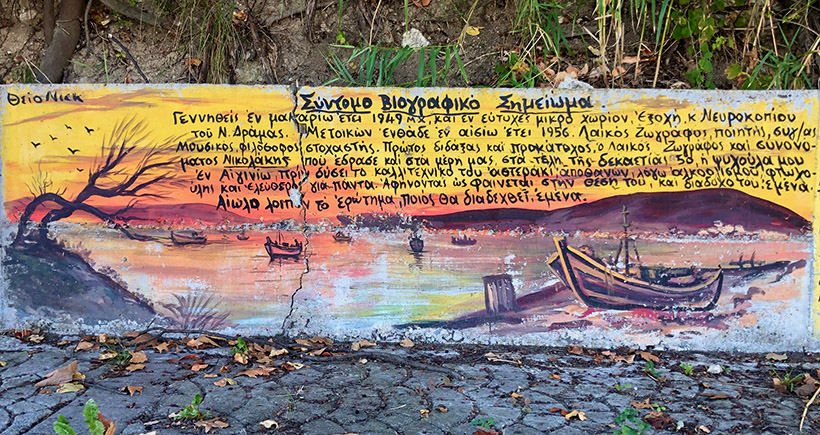 Θείο Νίεκ
Σύντομο Βιογραφικό Σημείωμα
Γεννηθείς εν μακαρίω έτει 1949 μχ και εν ευτυχές μικρό χωρίον, Έξοχή, κ. Νευροκοπίου
τού Ν. Δράμας. Μετοικών ένθάδε έν αισίω έτει 1956. Λαϊκός Ζωγράφος, ποιητής,
Μουσικός, φιλόσοφος, στοχαστής. Πρώτος διδάξας και προκάτοχος, ο Λαϊκός Ζωγράφος και συνονό-
ματος Νικολάκης που έδρασε και στα μέρη μας, στα τέλη της δεκαετίας 50, η ψυχούλα μου
έν Αιγινίω, πριν δύσει το καλλιτεχνικό του αστεράκι, αποθανών, λόγω αλκοολισμού, φτωχο-
ύλη και έλεύθερη για πάντα. Αφήνοντας ως φαίνεται, στην θέση του, και διάδοχο του, έμένα.
Αίωλο λοιπόν το έρώτημα, ποιός θα διαδεχθεί, έμένα.